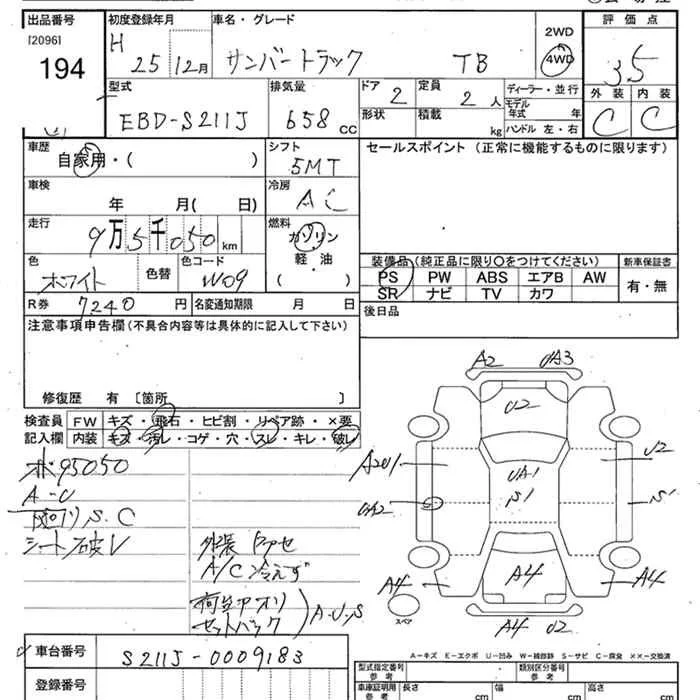 出品番号 初度登録年月 車名・グレード 評価点
[2096]
194
H 25 12月 サンバートラック TB 2WD 4WD 3.5
型式 排気量 ドア 定員 ディーラー・並行 外装 内装
EBD-S211J 658 cc 2 2人 モデル年式 年
形状 積載 kg ハンドル 左・右 C C
車歴 シフト セールスポイント (正常に機能するものに限ります)
自家用・( ) 5MT
車検 冷房
年 月( 日) AC
走行 燃料
9万5千050km ガソリン
軽・油
( )
色 色替 色コード 装備品(純正品に限り○をつけてください) 新車保証書
ホワイト W09 PS PW ABS エアB AW 有・無
SR ナビ TV カワ
R券 7240円 名変通知期限 月 日 後日品
注意事項申告欄(不具合内容等は具体的に記入して下さい)
修復歴 有 〔箇所
検査員 FW キズ・飛石・ヒビ割・リペア跡・×要
記入欄 内装 キズ・汚レ・コゲ・穴・スレ・キレ・破レ
A2 UA3
U2
95050 A201 UA1 U2
A-U UA2 S1 S1
S.C
シート破レ 外装
A/C冷えず A4 A4 A4
A.U.S
セットバック スペア A4 U2
A−キズ E−エクボ U−凹み W−補修跡 S−サビ C−腐食 ××−交換済
車台番号 S211J-0009183 型式指定番号 参考 類別区分番号 参考
登録番号 車庫証明用 参考 長さ cm 幅 cm 高さ cm